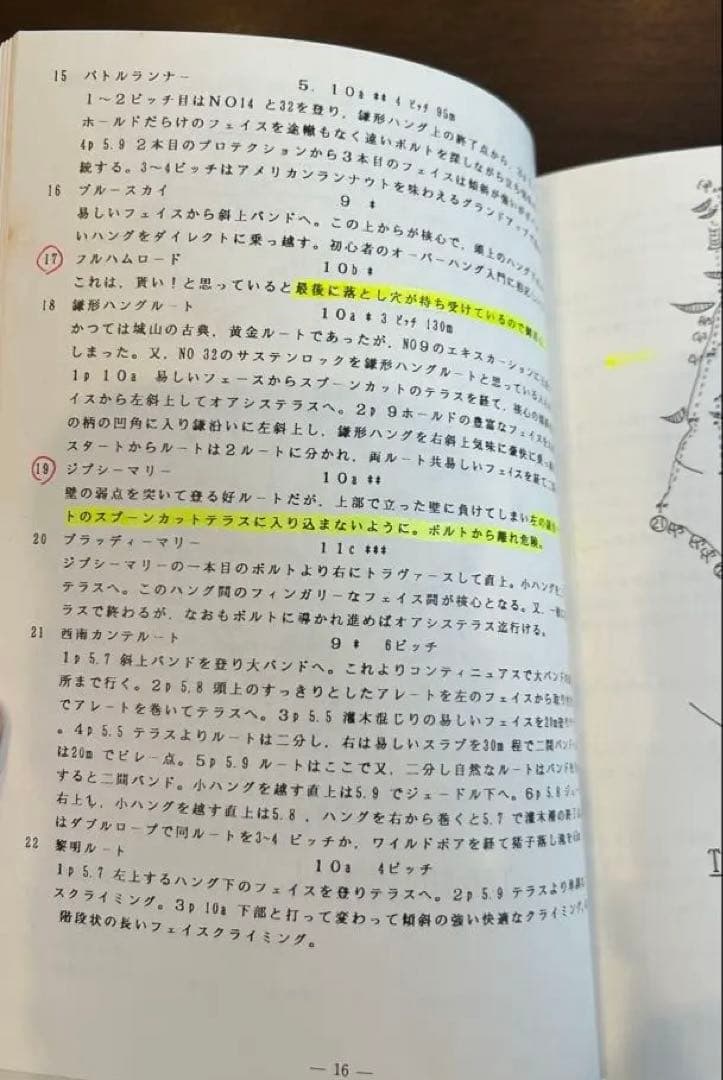 15 バトルランナー
5. 10a ** 4 ピッチ 95m
1~2ピッチ目はNO14 と32を登り, 鎌形ハング上の終了点から,
ホールドだらけのフェイスを途轍もなく遠いボルトを探しながら立ち
4p 5.9 2本目のプロテクションから3本目のフェイスは傾斜が
続する。3~4ピッチはアメリカンランナウトを味わえるグランドアップ
16 ブルースカイ
9 *
易しいフェイスから斜上バンドへ。この上からが核心で, 頭上のハング
いハングをダイレクトに乗っ越す。初心者のオーバーハング入門に
17 フルハムロード
10b *
これは, 貰い!と思っていると最後に落とし穴が待ち受けているので
18 鎌形ハングルート
10a * 3 ピッチ 130m
かつては城山の古典, 黄金ルートであったが, NO9のエキスカーションに
しまった。又, NO 32のサステンロックを鎌形ハングルートと思っている
1p 10a 易しいフェースからスプーンカットのテラスを経て, 核心の
イスから左斜上してオアシステラスへ。2p 9ホールドの豊富なフェイスを
の柄の凹角に入り鎌沿いに左斜上し, 鎌形ハングを右斜上気味に豪快に乗っ
スタートからルートは2ルートに分かれ, 両ルート共易しいフェイスを経て
19 ジプシーマリー
10a **
壁の弱点を突いて登る好ルートだが, 上部で立った壁に負けてしまい左の
トのスプーンカットテラスに入り込まないように。ボルトから離れ危険。
20 ブラッディーマリー
11c ***
ジプシーマリーの一本目のボルトより右にトラヴァースして直上。小ハングを
テラスへ。このハング間のフィンガリーなフェイス間が核心となる。又, 一般に
ラスで終わるが, なおもボルトに導かれ進めばオアシステラス迄行ける。
21 西南カンテルート
9 * 6ピッチ
1p 5.7 斜上バンドを登り大バンドへ。これよりコンティニュアスで大バンドの
所まで行く。2p 5.8 頭上のすっきりとしたアレートを左のフェイスから取り
でアレートを巻いてテラスへ。3p 5.5 灌木混じりの易しいフェイスを20m
。4p 5.5 テラスよりルートは二分し, 右は易しいスラブを30m 程で二間バンド
は20m でビレー点。5p 5.9 ルートはここで又, 二分し自然なルートはバンドを
すると二間バンド。小ハングを越す直上は5.9 でジェードル下へ。6p 5.8 ジェ
右上し, 小ハングを越す直上は5.8 , ハングを右から巻くと5.7 で灌木
はダブルロープで同ルートを3~4 ピッチか, ワイルドボアを経て猪子落し滝を
22 黎明ルート
10a 4ピッチ
1p 5.7 左上するハング下のフェイスを登りテラスへ。2p 5.9 テラスより
スクライミング。3p 10a 下部と打って変わって傾斜の強い快適なクライミング。
階段状の長いフェイスクライミング。
— 16 —
21
T